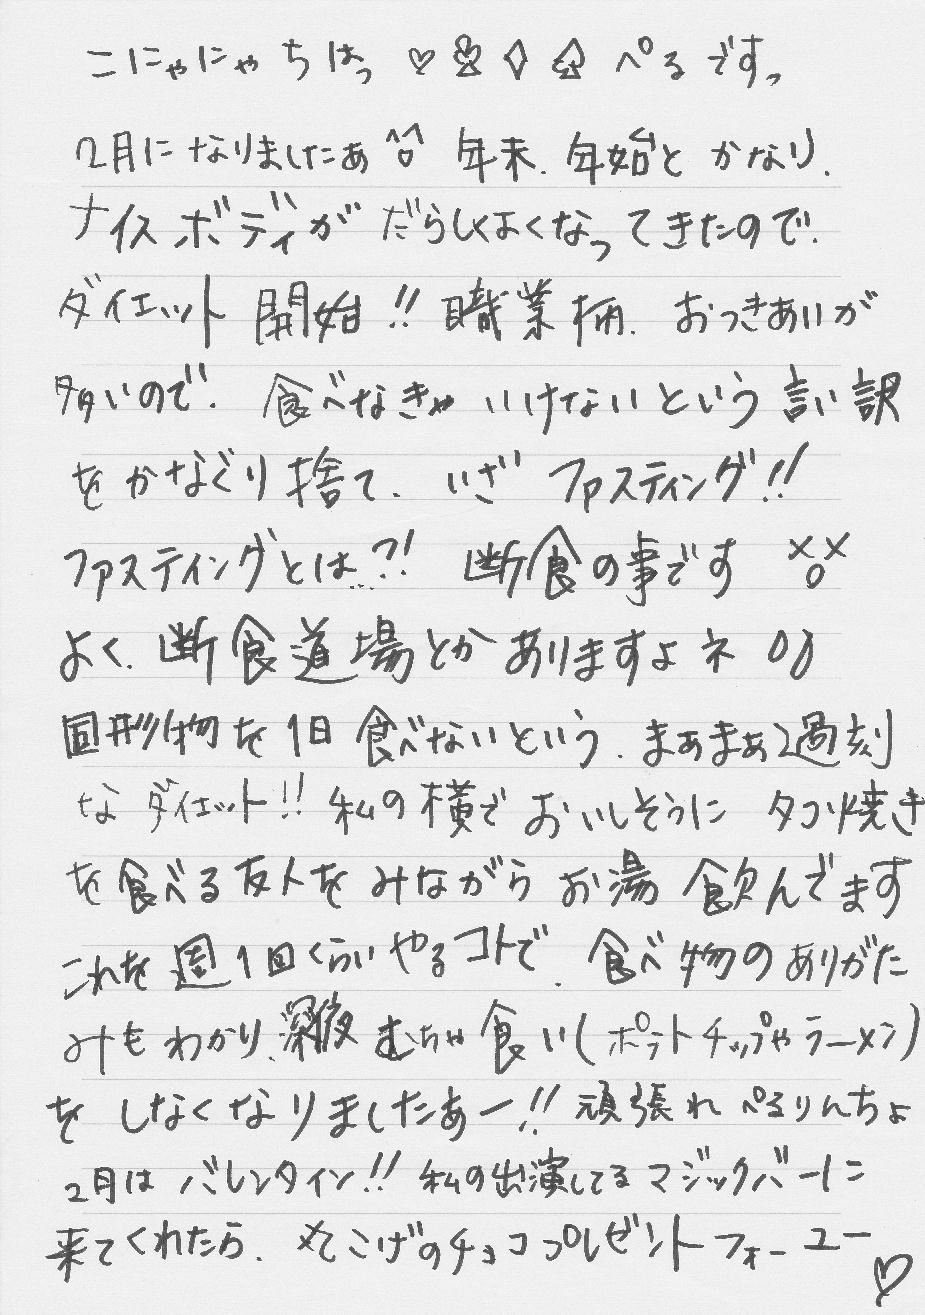 こにゃにゃちはっ ♡♧♢♤ ぺるですっ
2月になりましたぁ^o^ 年末、年始とかなり、
ナイスボディがだらしくよくなってきたので、
ダイエット開始!! 職業柄、おつきあいが
多いので、食べなきゃいけないという言い訳
をかなぐり捨て、いざファスティング!!
ファスティングとは…?! 断食の事です xox
よく、断食道場とかありますよネ
固形物を1日食べないという、まぁまぁ過刻
なダイエット!! 私の横でおいしそうにタコ焼き
を食べる友人をみながらお湯飲んでます
これを週1回くらいやるコトで、食べ物のありがた
みもわかり、深夜むちゃ食い(ポテトチップやラーメン)
をしなくなりましたあー!! 頑張れぺるりんちょ
2月はバレンタイン!! 私の出演してるマジックバーに
来てくれたら、丸こげのチョコプレゼントフォーユー♡